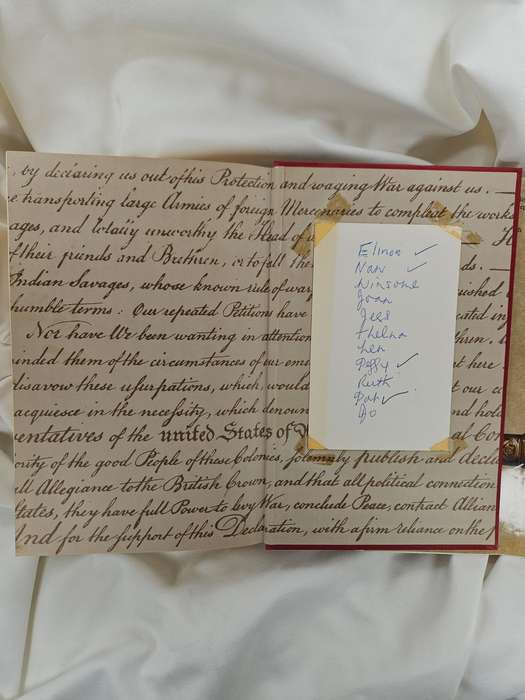 , by declaring us out of his Protection and waging War against us. —
e transporting large Armies of foreign Mercenaries to compleat the works
ages, and totally unworthy the Head of a
of their friends and Brethren, or to fall the ds. —
Indian Savages, whose known rule of war
humble terms: Our repeated Petitions have
Nor have We been wanting in attention
inded them of the circumstances of our em t here
disavow these usurpations, which, would
acquiesce in the necessity, which denoun nd hold
entatives of the united States of al Con
ority of the good People of these Colonies, solemnly publish and decla
all Allegiance to the British Crown, and that all political connection
States, they have full Power to levy War, conclude Peace, contract Allian
And for the support of this Declaration, with a firm reliance on the
Elinor ✓
Nan ✓
Winsome
Joan
Thelma
Len
Peggy ✓
Ruth
Pat ✓
Jo